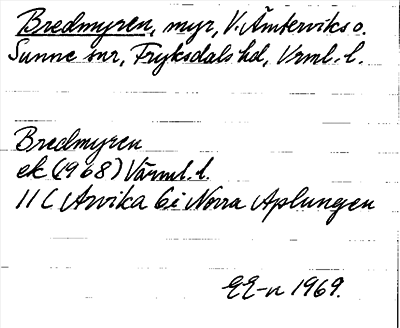 Bredmyren, myr, V. Ämterviks o.
Sunne snr, Fryksdals hd, Vrml. l.
Bredmyren
ek (1968) Värml. l.
11 C Arvika 6i Norra Aplungen
EE-n 1969.